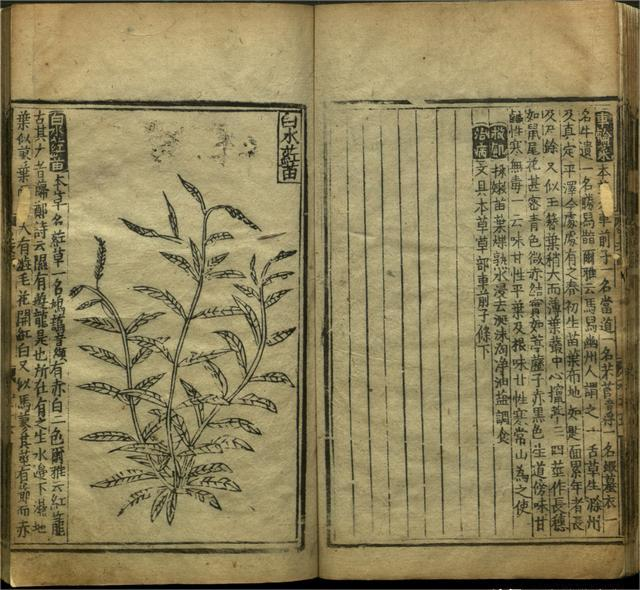 車輪菜 本 車前子一名當道一名芣苢音浮 一名蝦蟇衣一
名牛遺一名勝舄 爾雅云馬舄幽州人謂之牛舌草生滁州
及真定平澤今處處有之春初生苗葉布地如匙面累年者長
及尺餘又似玉簪葉稍大而薄葉叢中心攛葶三四莖作長穗
如鼠尾花甚密青色微赤結實如葶藶子赤黑色生道傍味甘
鹹性寒無毒一云味甘性平葉及根味甘性寒常山為之使
救飢 採嫩苗葉煠熟水浸去涎沫淘淨油鹽調食
治病 文具本草草部車前子條下
白水葒苗
白水葒苗 本草名葒草一名鴻 音纈有赤白二色爾雅云紅蘢
古其大者蘬鄭詩云隰有遊龍是也所在有之生水邊下濕地
葉似蓼葉 大有澁毛花開紅白又似馬蓼其莖有節而赤